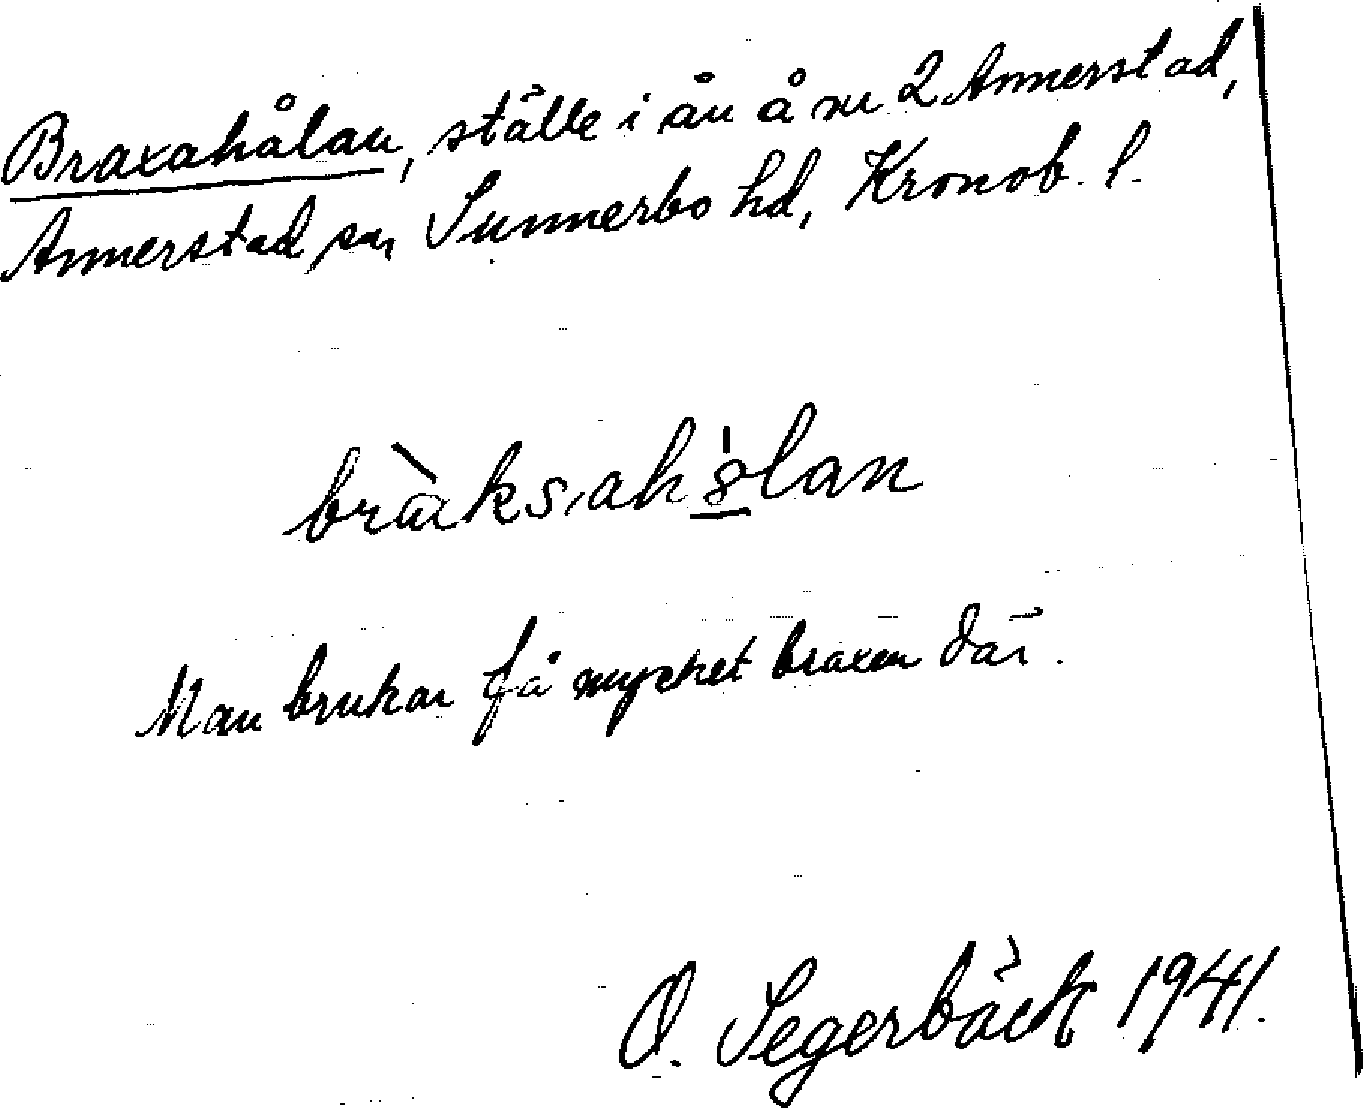 Braxahålan, ställe i ån å nr 2 Annerstad,
Annerstad sn, Sunnerbo hd, Kronob. l.
bràksahålan
Man brukar få mycket braxen där.
O. Segerbäck 1941.